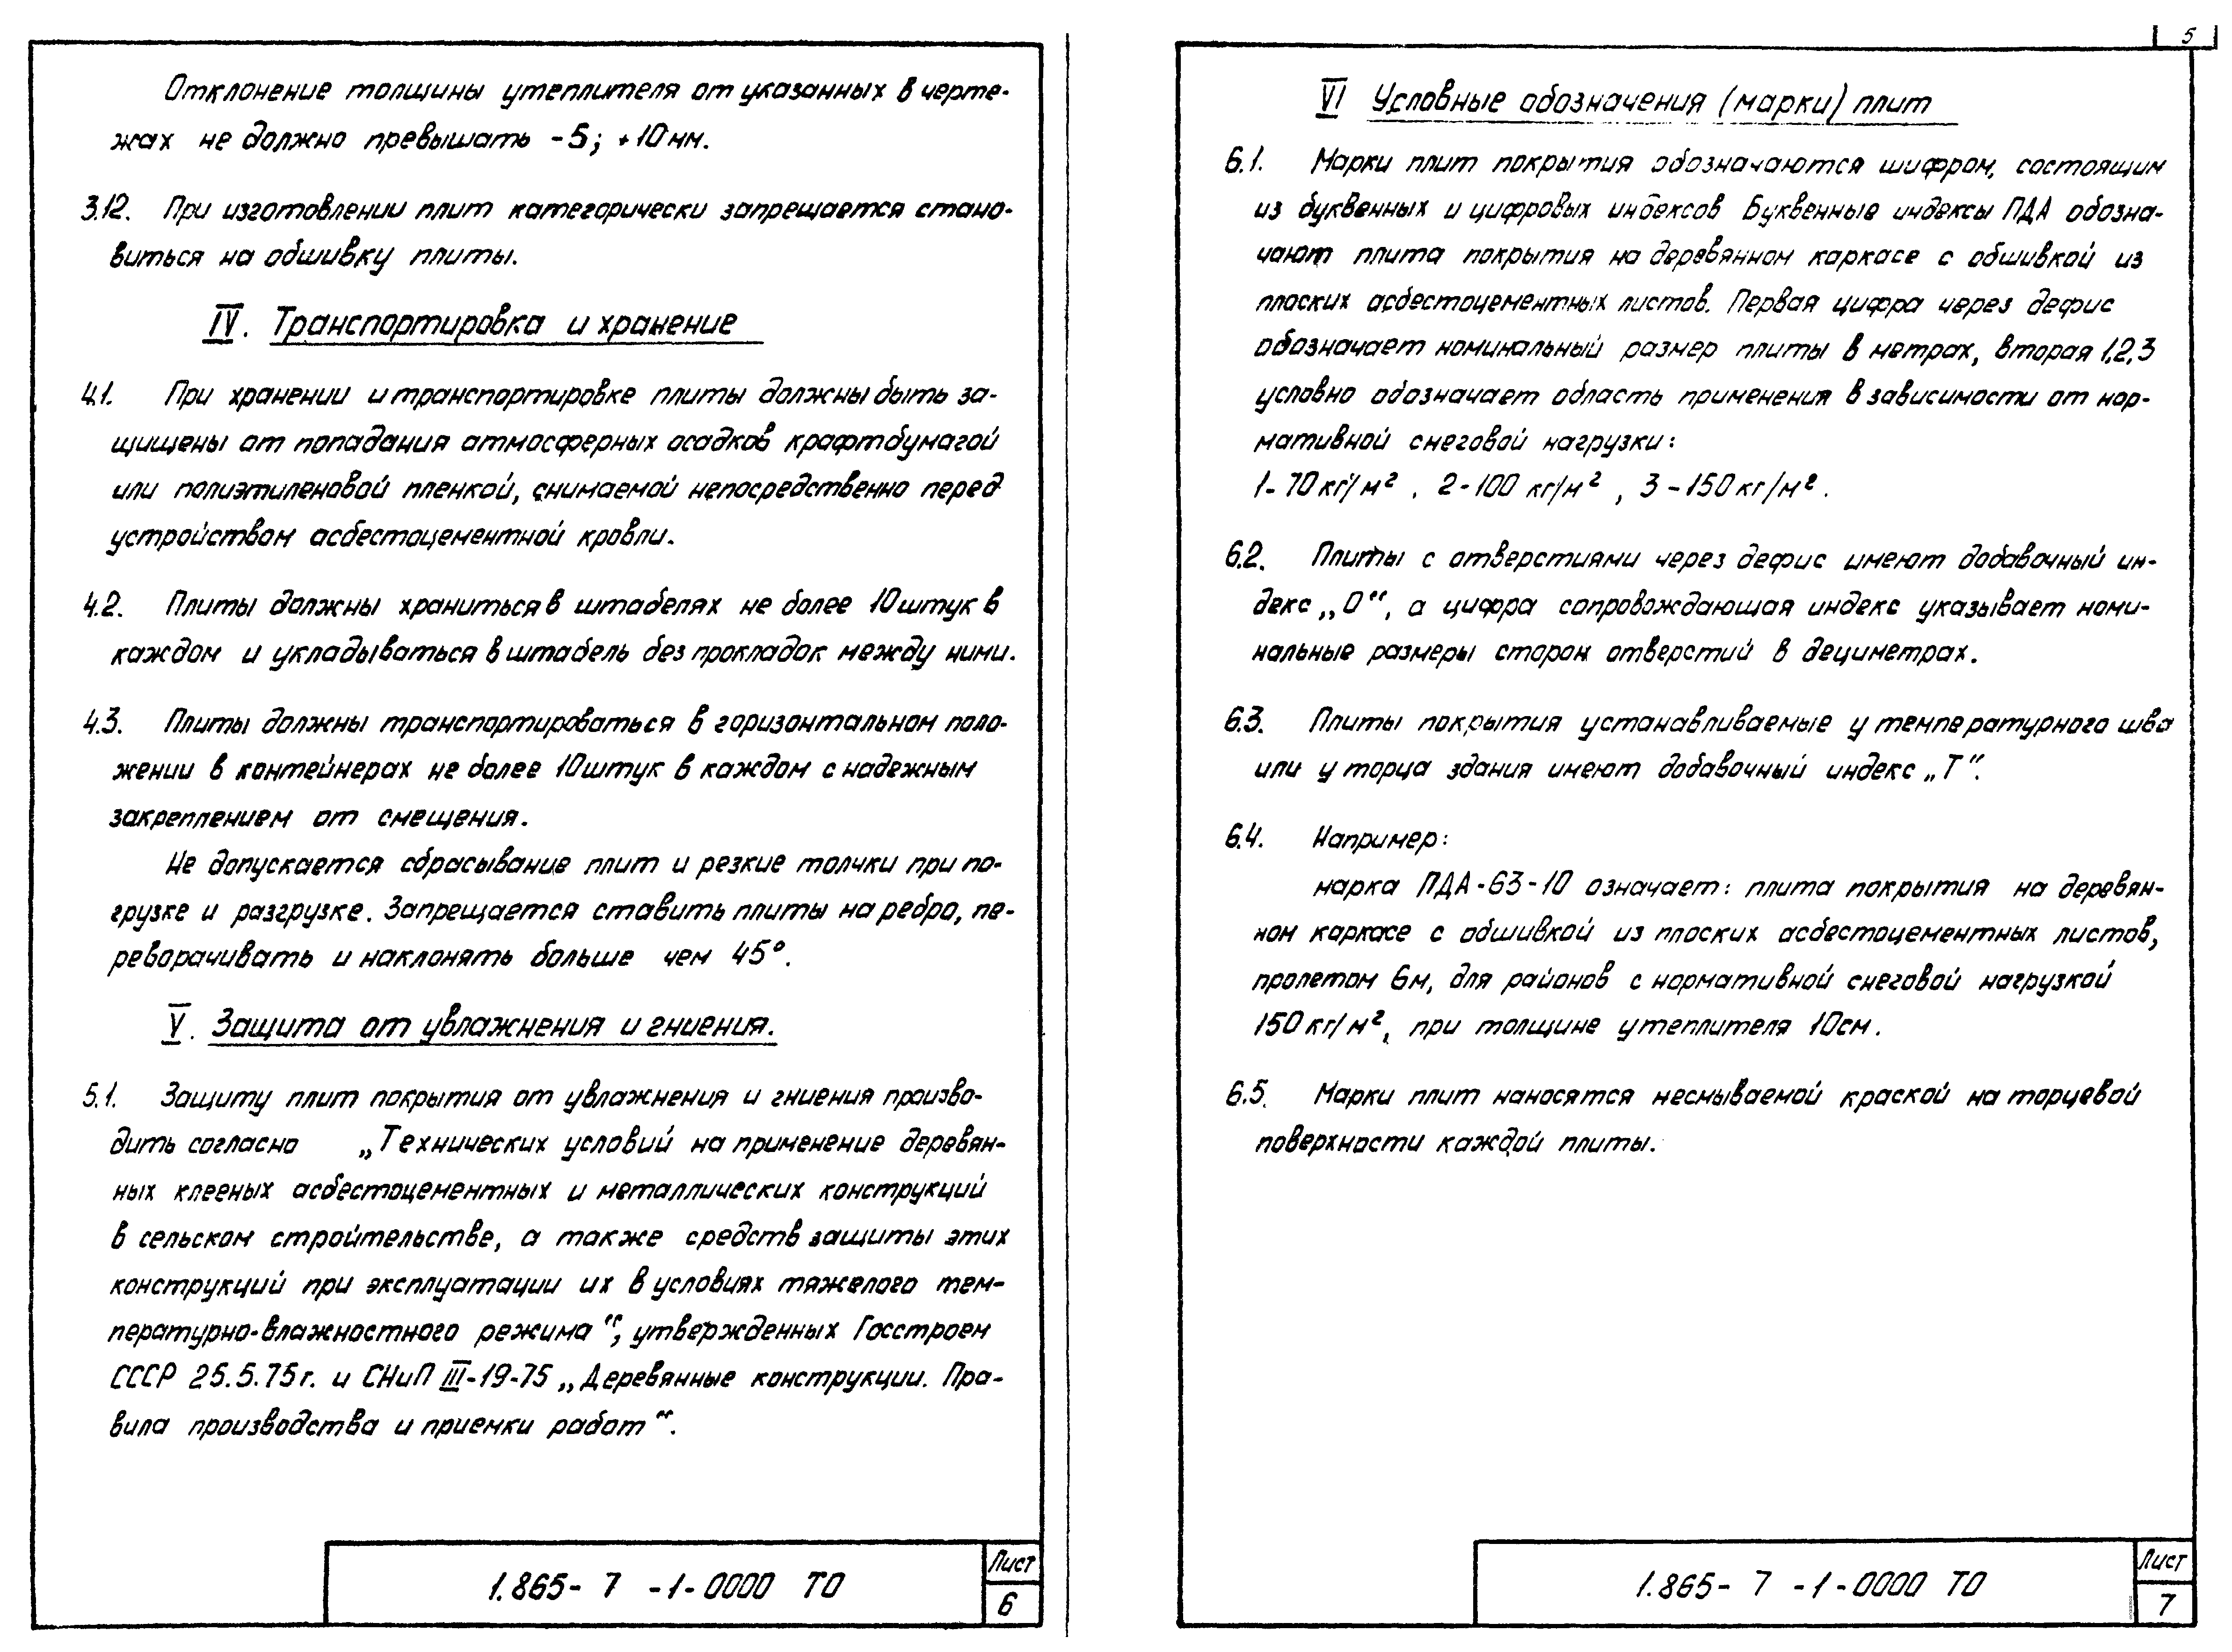 Отклонение толщины утеплителя от указанных в черте-
жах не должно превышать -5; +10мм.
3.12. При изготовлении плит категорически запрещается стано-
виться на обшивку плиты.
IV. Транспортировка и хранение
4.1. При хранении и транспортировке плиты должны быть за-
щищены от попадания атмосферных осадков крафтбумагой
или полиэтиленовой пленкой, снимаемой непосредственно перед
устройством асбестоцементной кровли.
4.2. Плиты должны храниться в штабелях не более 10 штук в
каждом и укладываться в штабель без прокладок между ними.
4.3. Плиты должны транспортироваться в горизонтальном поло-
жении в контейнерах не более 10 штук в каждом с надежным
закреплением от смещения.
Не допускается сбрасывание плит и резкие толчки при по-
грузке и разгрузке. Запрещается ставить плиты на ребро, пе-
реворачивать и наклонять больше чем 45°.
V. Защита от увлажнения и гниения.
5.1. Защиту плит покрытия от увлажнения и гниения произво-
дить согласно „Технических условий на применение деревян-
ных клееных асбестоцементных и металлических конструкций
в сельском строительстве, а также средств защиты этих
конструкций при эксплуатации их в условиях тяжелого тем-
пературно-влажностного режима“, утвержденных Госстроем
СССР 25.5.75г. и СНиП III-19-75 „Деревянные конструкции. Пра-
вила производства и приемки работ“.
1.865- 7 -1-0000 ТО
Лист
6
5
VI Условные обозначения (марки) плит
6.1. Марки плит покрытия обозначаются шифром, состоящим
из буквенных и цифровых индексов Буквенные индексы ПДА обозна-
чают плита покрытия на деревянном каркасе с обшивкой из
плоских асбестоцементных листов. Первая цифра через дефис
обозначает номинальный размер плиты в метрах, вторая 1,2,3
условно обозначает область применения в зависимости от нор-
мативной снеговой нагрузки:
1-70кг/м², 2-100 кг/м², 3-150кг/м².
6.2. Плиты с отверстиями через дефис имеют добавочный ин-
декс „О“, а цифра сопровождающая индекс указывает номи-
нальные размеры сторон отверстий в дециметрах.
6.3. Плиты покрытия устанавливаемые у температурного шва
или у торца здания имеют добавочный индекс „Т“.
6.4. Например:
марка ПДА-63-10 означает: плита покрытия на деревян-
ном каркасе с обшивкой из плоских асбестоцементных листов,
пролетом 6м, для районов с нормативной снеговой нагрузкой
150кг/м², при толщине утеплителя 10см.
6.5. Марки плит наносятся несмываемой краской на торцевой
поверхности каждой плиты.
1.865- 7 -1-0000 ТО
Лист
7